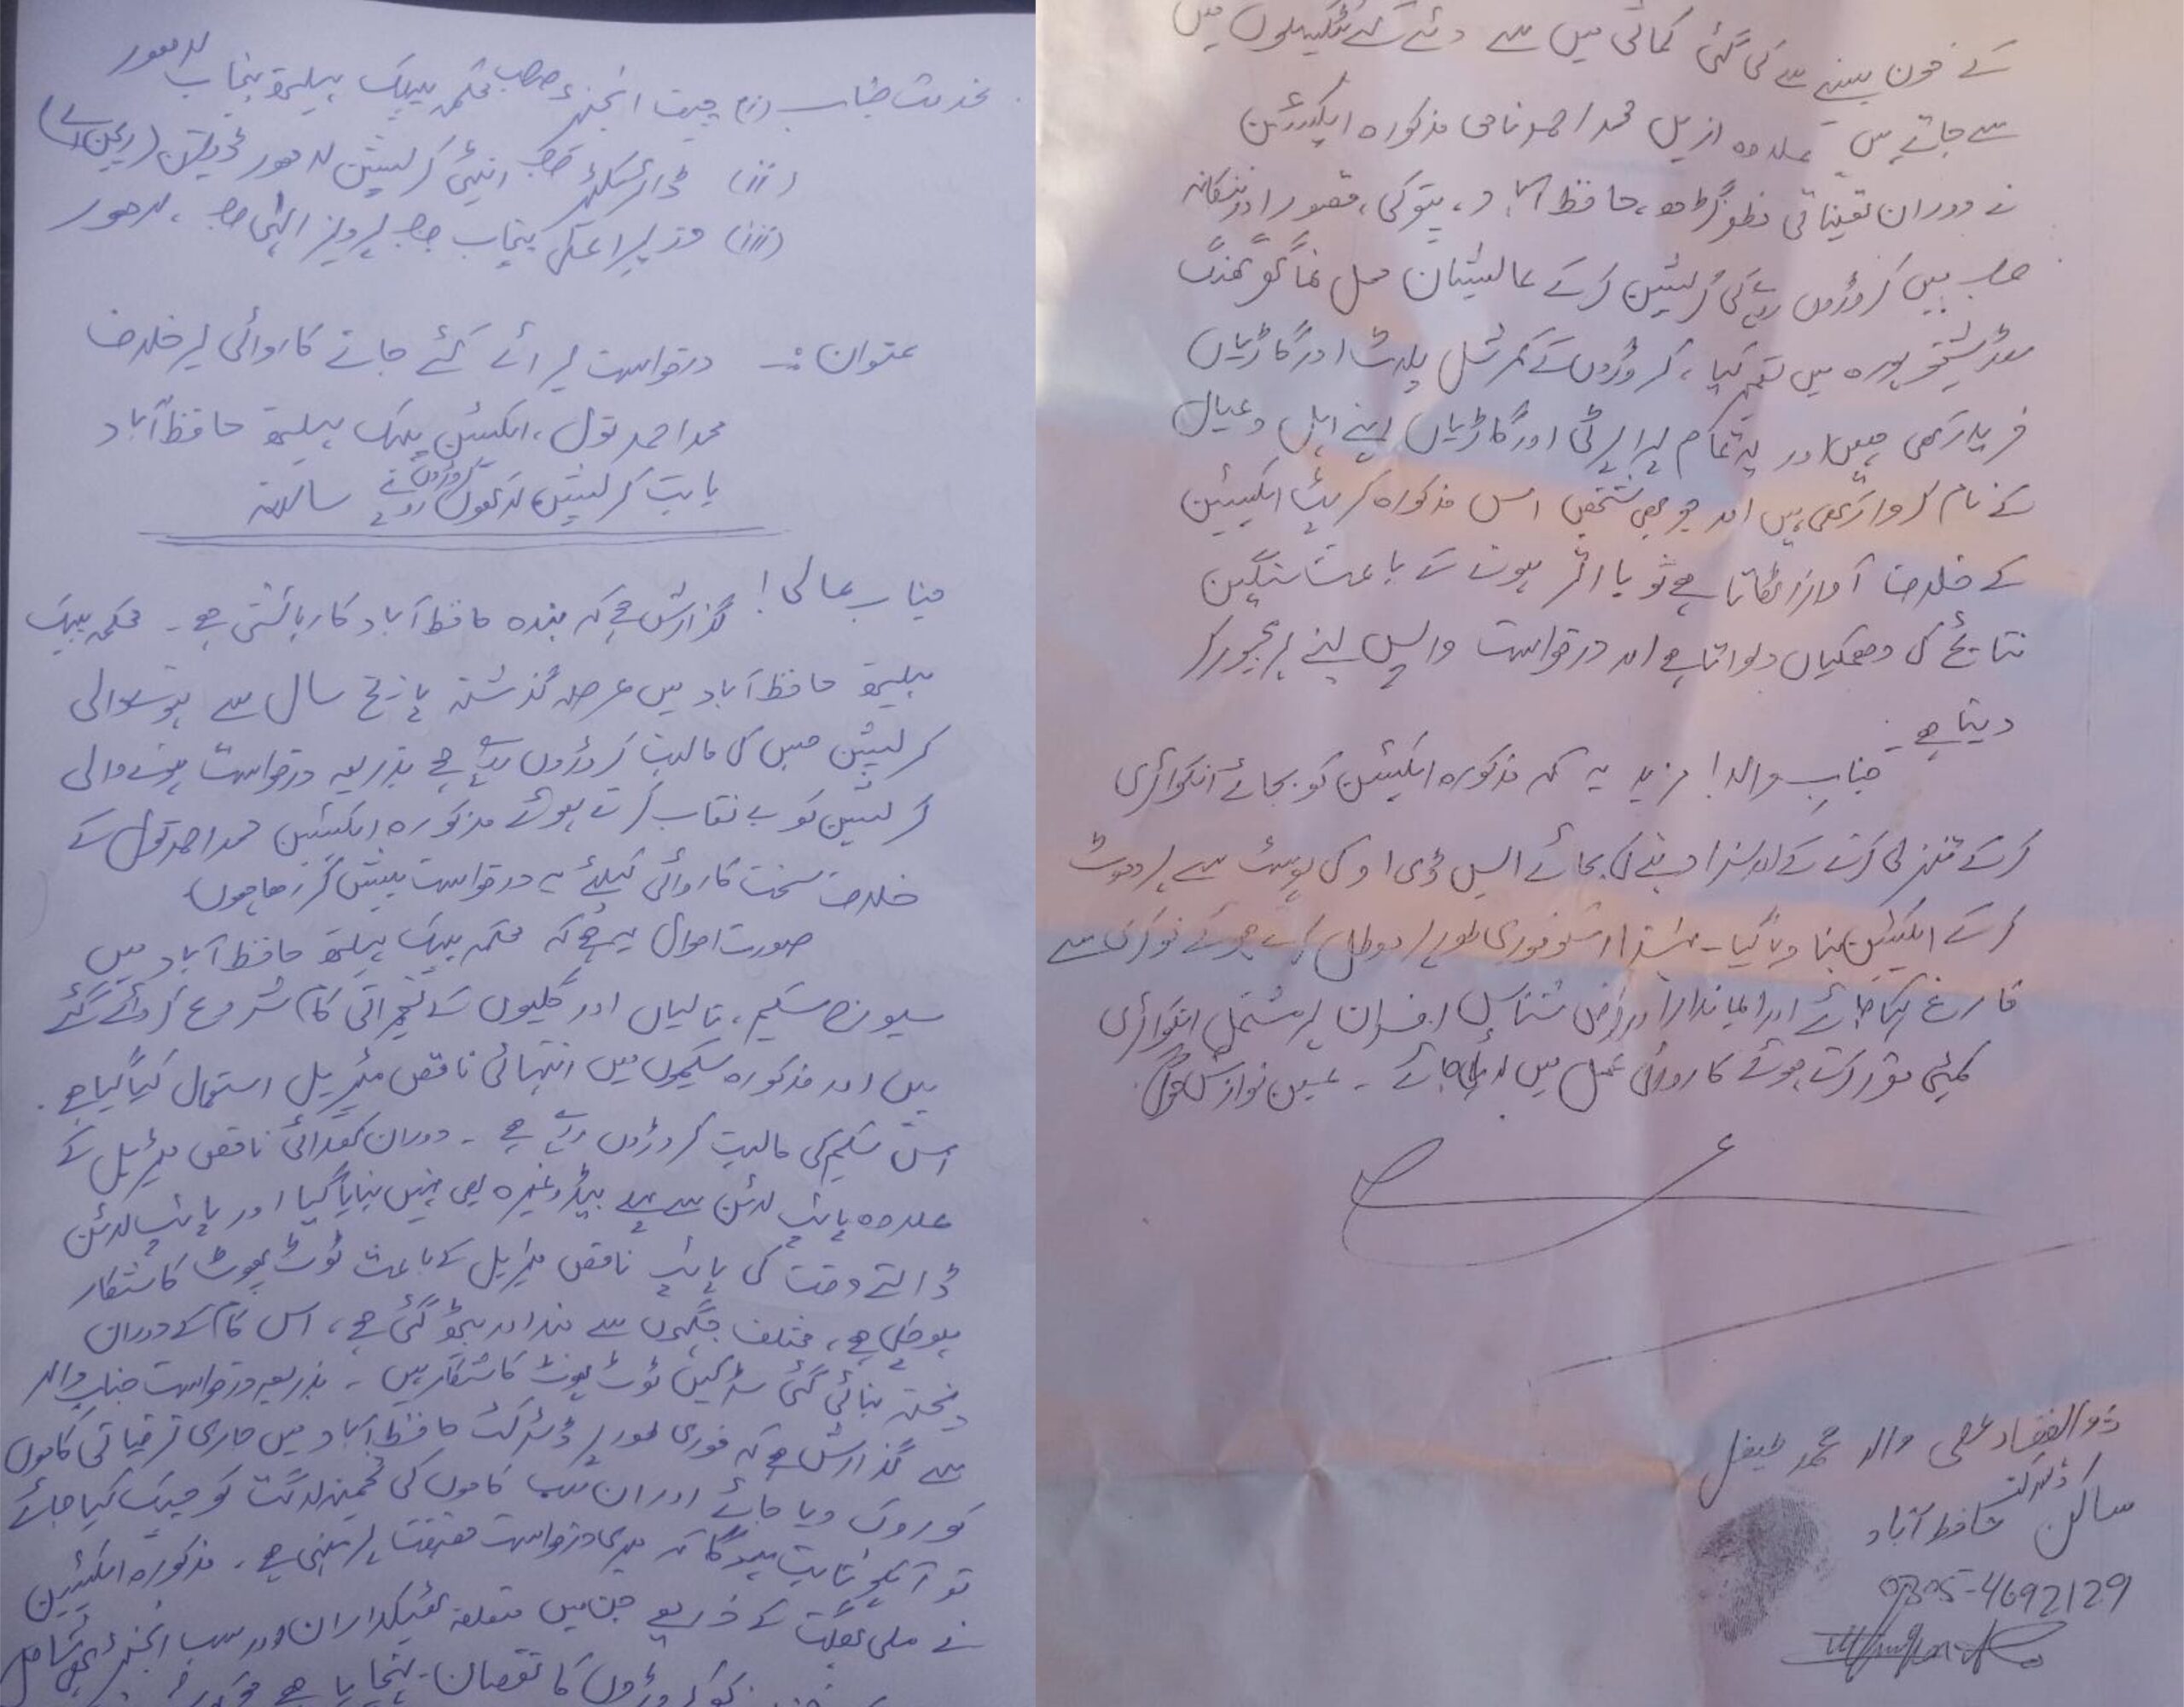 بخدمت جناب (i) چیف انجینئر صاحب محکمہ پبلک ہیلتھ پنجاب لاہور
(ii) ڈائریکٹر صاحب انٹی کرپشن لاہور ڈویژن (ریجن اے)
(iii) وزیر اعلیٰ پنجاب جناب پرویز الٰہی صاحب، لاہور
عنوان:۔ درخواست برائے کئے جانے کاروائی برخلاف
محمد احمد، ایکسئین پبلک ہیلتھ حافظ آباد
بابت کرپشن لاکھوں کروڑوں روپے سالانہ
جناب عالی! گذارش ہے کہ بندہ حافظ آباد کا رہائشی ہے۔ محکمہ پبلک
ہیلتھ حافظ آباد میں عرصہ گذشتہ پانچ سال سے ہونیوالی
کرپشن جس کی مالیت کروڑوں روپے ہے بذریعہ درخواست ہونے والی
کرپشن کو بے نقاب کرتے ہوئے مذکورہ ایکسئین محمد احمد کے
خلاف سخت کاروائی کیلئے یہ درخواست پیش کر رہا ہوں
صورت احوال یہ ہے کہ محکمہ پبلک ہیلتھ حافظ آباد میں
سیوریج سکیم، نالیاں اور گلیوں کے تعمیراتی کام شروع کروائے گئے
ہیں اور مذکورہ سکیموں میں انتہائی ناقص میٹریل استعمال کیا گیا ہے۔
اس سکیم کی مالیت کروڑوں روپے ہے۔ دوران کھدائی ناقص میٹریل کے
علاوہ پائپ لائن سے پہلے بیڈ وغیرہ بھی نہیں بنایا گیا اور پائپ لائن
ڈالتے وقت کی پائپ ناقص میٹریل کے باعث ٹوٹ پھوٹ کا شکار
ہو چکی ہے، مختلف جگہوں سے بند اور ہو گئی ہے، اس کام کے دوران
پختہ بنائی گئی سڑکیں ٹوٹ پھوٹ کا شکار ہیں۔ بذریعہ درخواست جناب والا
سے گذارش ہے کہ فوری طور پر ڈسٹرکٹ حافظ آباد میں جاری ترقیاتی کاموں
کو روک دیا جائے اور ان سب کاموں کی تخمینہ لاگت کو چیک کیا جائے
تو آپکو ثابت ہوگا کہ میری درخواست حقیقت پر مبنی ہے۔ مذکورہ ایکسئین
نے ملی بھگت کے ذریعے جن میں متعلقہ ٹھیکیداران اور سب انجینئر بھی شامل
کو کروڑوں کا نقصان پہنچایا ہے
کے خون پسینے سے کی گئی کمائی میں سے دئے گئے ٹیکسوں میں
سے جاتے ہیں علاوہ ازیں محمد احمد نامی مذکورہ ایکسئین
نے دوران تعیناتی مظفر گڑھ، حافظ آباد، پتوکی، قصور اور ننکانہ
صاحب میں کروڑوں روپے کی کرپشن کر کے عالیشان محل نما کوٹھی
شیخوپورہ میں تعمیر کیا، کروڑوں کے کمرشل پلاٹ اور گاڑیاں
خرید رکھی ہیں اور یہ تمام پراپرٹی اور گاڑیاں اپنے اہل و عیال
کے نام کروا رکھی ہیں اور جو بھی شخص اس مذکورہ کرپٹ ایکسئین
کے خلاف آواز اٹھاتا ہے تو با اثر ہونے کے باعث سنگین
نتائج کی دھمکیاں دلواتا ہے اور درخواست واپس لینے پر مجبور کر
دیتا ہے۔
جناب والا! مزید یہ کہ مذکورہ ایکسئین کو بجائے انکوائری
کر کے تنزلی کرنے کے اور سزا دینے کی بجائے ایس ڈی او کی پوسٹ سے پرموٹ
کر کے ایکسئین بنا دیا گیا۔ لہٰذا اسکو فوری طور پر معطل کرتے ہوئے نوکری سے
فارغ کیا جائے اور ایماندار اور فرض شناس افسران پر مشتمل انکوائری
کمیٹی مقرر کرتے ہوئے کاروائی عمل میں لائی جائے۔ عین نوازش ہوگی
ذوالفقار علی والد محمد طفیل
ساکن ڈسٹرکٹ حافظ آباد
0305-4692129